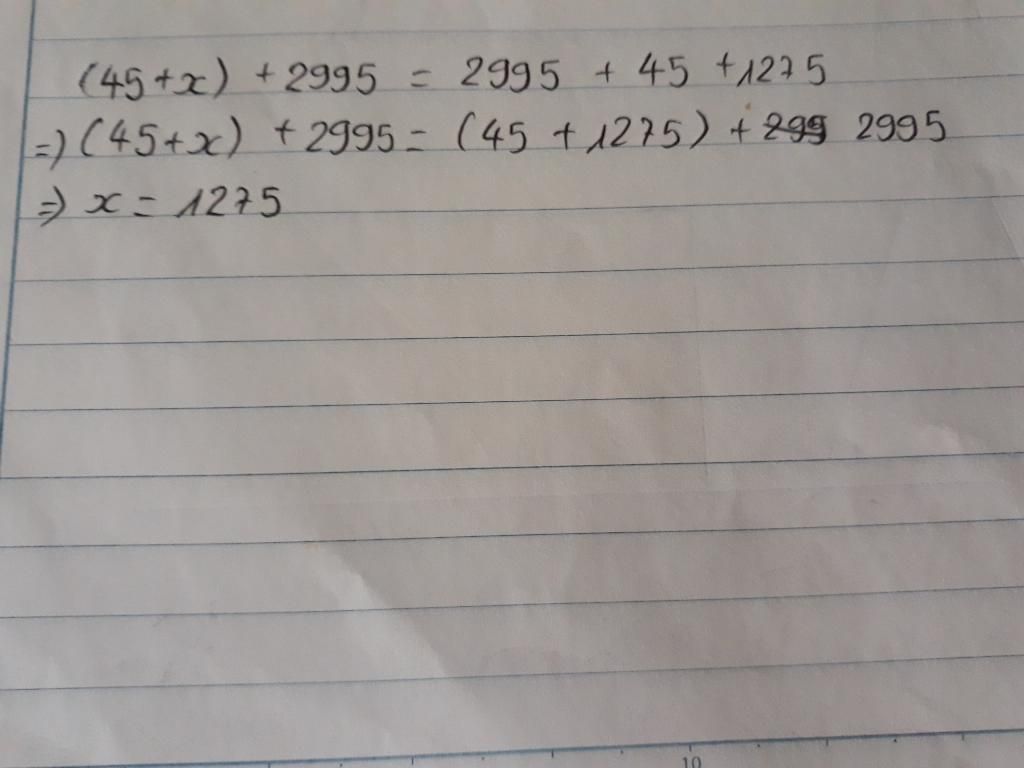 (45+x) + 2995 = 2995 + 45 + 1275
=) (45+x) + 2995 = (45 + 1275) + 299 2995
=) x = 1275
10